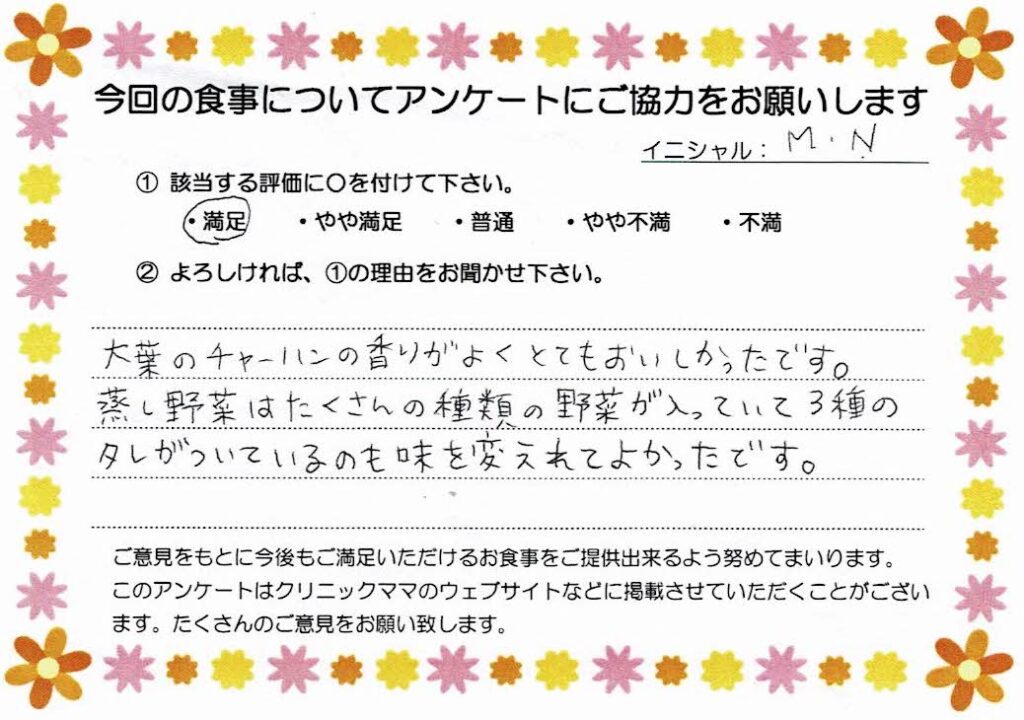 今回の食事についてアンケートにご協力をお願いします
イニシャル： M・N
① 該当する評価に〇を付けて下さい。
・満足 ・やや満足 ・普通 ・やや不満 ・不満
② よろしければ、①の理由をお聞かせ下さい。
大葉のチャーハンの香りがよくとてもおいしかったです。
蒸し野菜はたくさんの種類の野菜が入っていて3種の
タレがついているのも味を変えれてよかったです。
ご意見をもとに今後もご満足いただけるお食事をご提供出来るよう努めてまいります。
このアンケートはクリニックママのウェブサイトなどに掲載させていただくことがござい
ます。たくさんのご意見をお願い致します。